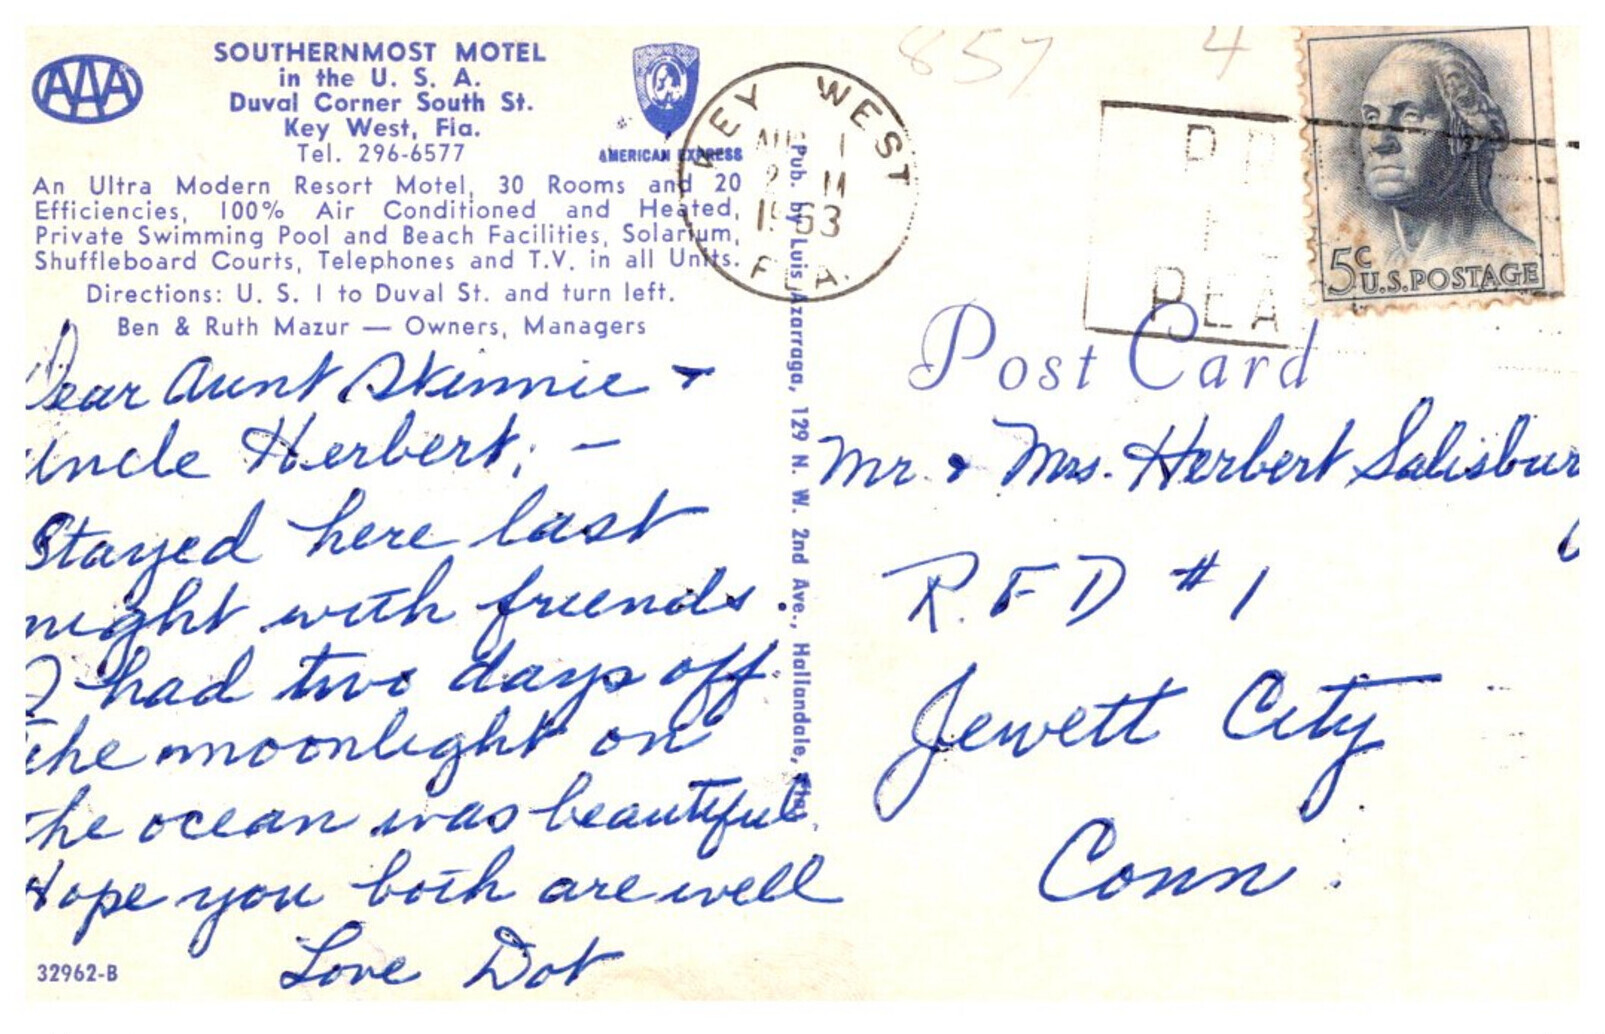 AAA
SOUTHERNMOST MOTEL
in the U. S. A.
Duval Corner South St.
Key West, Fla.
Tel. 296-6577
AMERICAN EXPRESS
An Ultra Modern Resort Motel, 30 Rooms and 20
Efficiencies, 100% Air Conditioned and Heated,
Private Swimming Pool and Beach Facilities, Solarium,
Shuffleboard Courts, Telephones and T.V. in all Units.
Directions: U. S. 1 to Duval St. and turn left.
Ben & Ruth Mazur — Owners, Managers
Dear Aunt Skinnie +
Uncle Herbert; —
Stayed here last
night with friends.
I had two days off
the moonlight on
the ocean was beautiful.
Hope you both are well
Love Dot
32962-B
Pub. by Luis Azarraga, 129 N. W. 2nd Ave., Hallandale, Fla.
KEY WEST
AUG 1
1963
FLA.
857
4
5c
U.S. POSTAGE
Post Card
Mr. & Mrs. Herbert Salisbury
R.F.D #1
Jewett City
Conn.